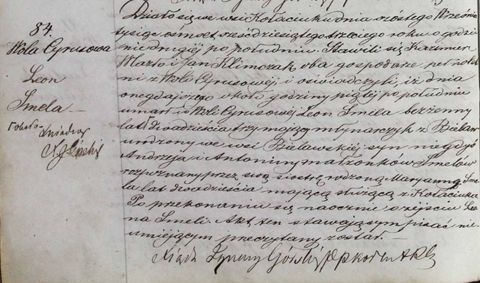 84.
Wola Cyrusowa
Leon
Smela
Działo się we wsi Kołaciuku dnia szóstego Wrześni
tysiąc ośmset sześćdziesiątego trzeciego roku o godzi
nie drugiej po południu. Stawili się Kazimierz
Marto i Jan Klimczak oba gospodarze pełnolet
ni z Woli Cyrusowej i oświadczyli, iż dnia
onegdajszego około godziny piątej po południu
umarł w Woli Cyrusowej Leon Smela bezżenny
lat dwadzieścia trzy mający młynarczyk z
urodzony we wsi Bielawskiej syn niegdyś
Andrzeja i Antoniny małżonków Smelów
rozpoznany przez swą siostrę rodzoną Maryannę Sme
la lat dwadzieścia mającą służącą z Kołaciuka
Po przekonaniu się naocznie o zejściu Leo
na Smeli. Akt ten stawającym pisać nie
umiejącym przeczytany został.
Xiądz Ignacy Górski